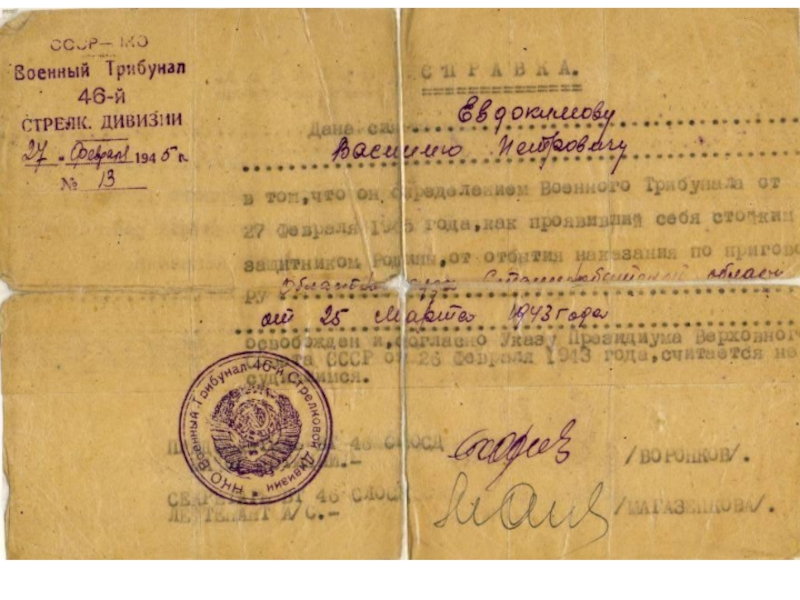 СССР — НКО
Военный Трибунал
46-й
СТРЕЛК. ДИВИЗИИ
27 " февраля 1945 г.
№ 13
СПРАВКА.
Дана сия Евдокимову
Василию Петровичу
в том, что он определением Военного Трибунала от
27 Февраля 1945 года, как проявивший себя стойким
защитником Родины, от отбытия наказания по пригово-
ру области
от 25 Марта 1943 года
освобожден и, согласно Указу Президиума Верховного
СССР от 26 Февраля 1943 года, считается не
судившимся.
НКО Военный Трибунал 46-й Стрелковой Дивизии
46 СЛОСД
/ВОРОНКОВ/.
СЕКРЕТАРЬ ВТ 46 СЛОСД
ЛЕЙТЕНАНТ А/С.-
/МАГАЗЕНКОВА/.